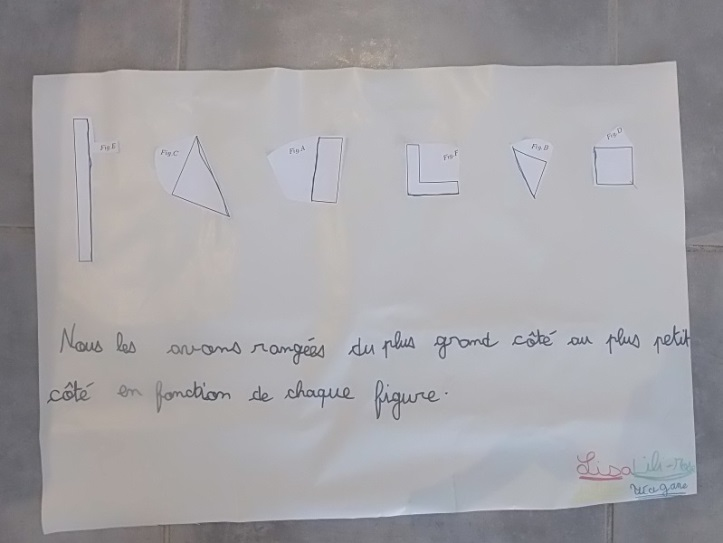 Fig.E
Fig.C
Fig.A
Fig.F
Fig.B
Fig.D
Nous les avons rangées du plus grand côté au plus petit
côté en fonction de chaque figure.
Lisa